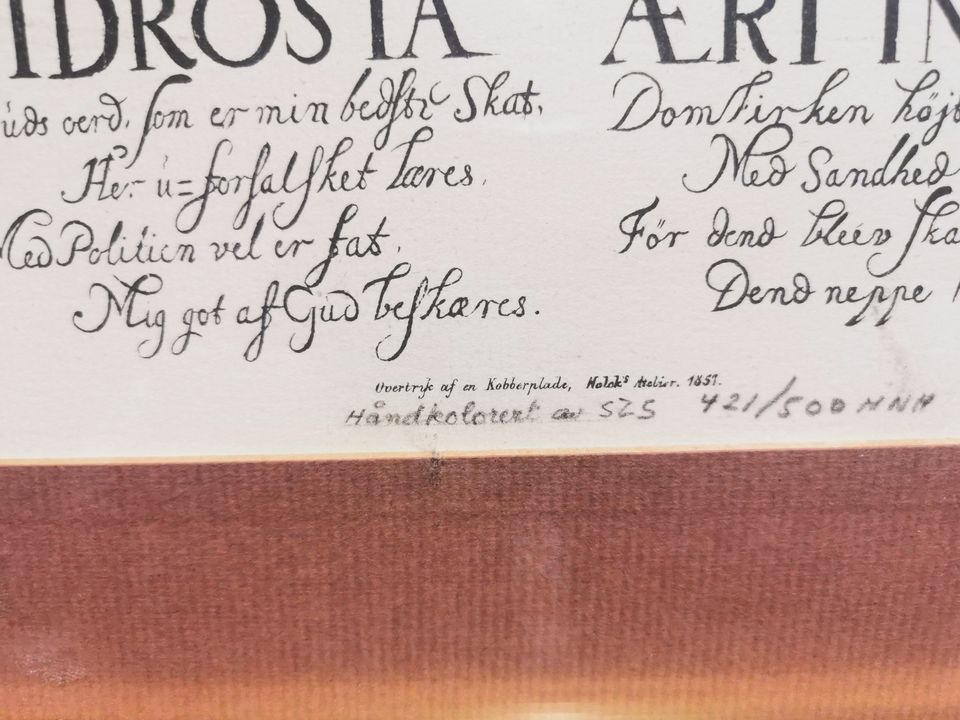 IDROSIA ÆRI IN
uds oerd, som er min bedste Skat,
Her u=forfalsket læres.
Med Politien vel er fat,
Mig got af Gud beskæres.
Domkirken højt
Med Sandhed
För dend bleev ska
Dend neppe
Overtryk af en Kobberplade, Atelier. 1857.
Håndkolorert av SZS 421/500 HNH